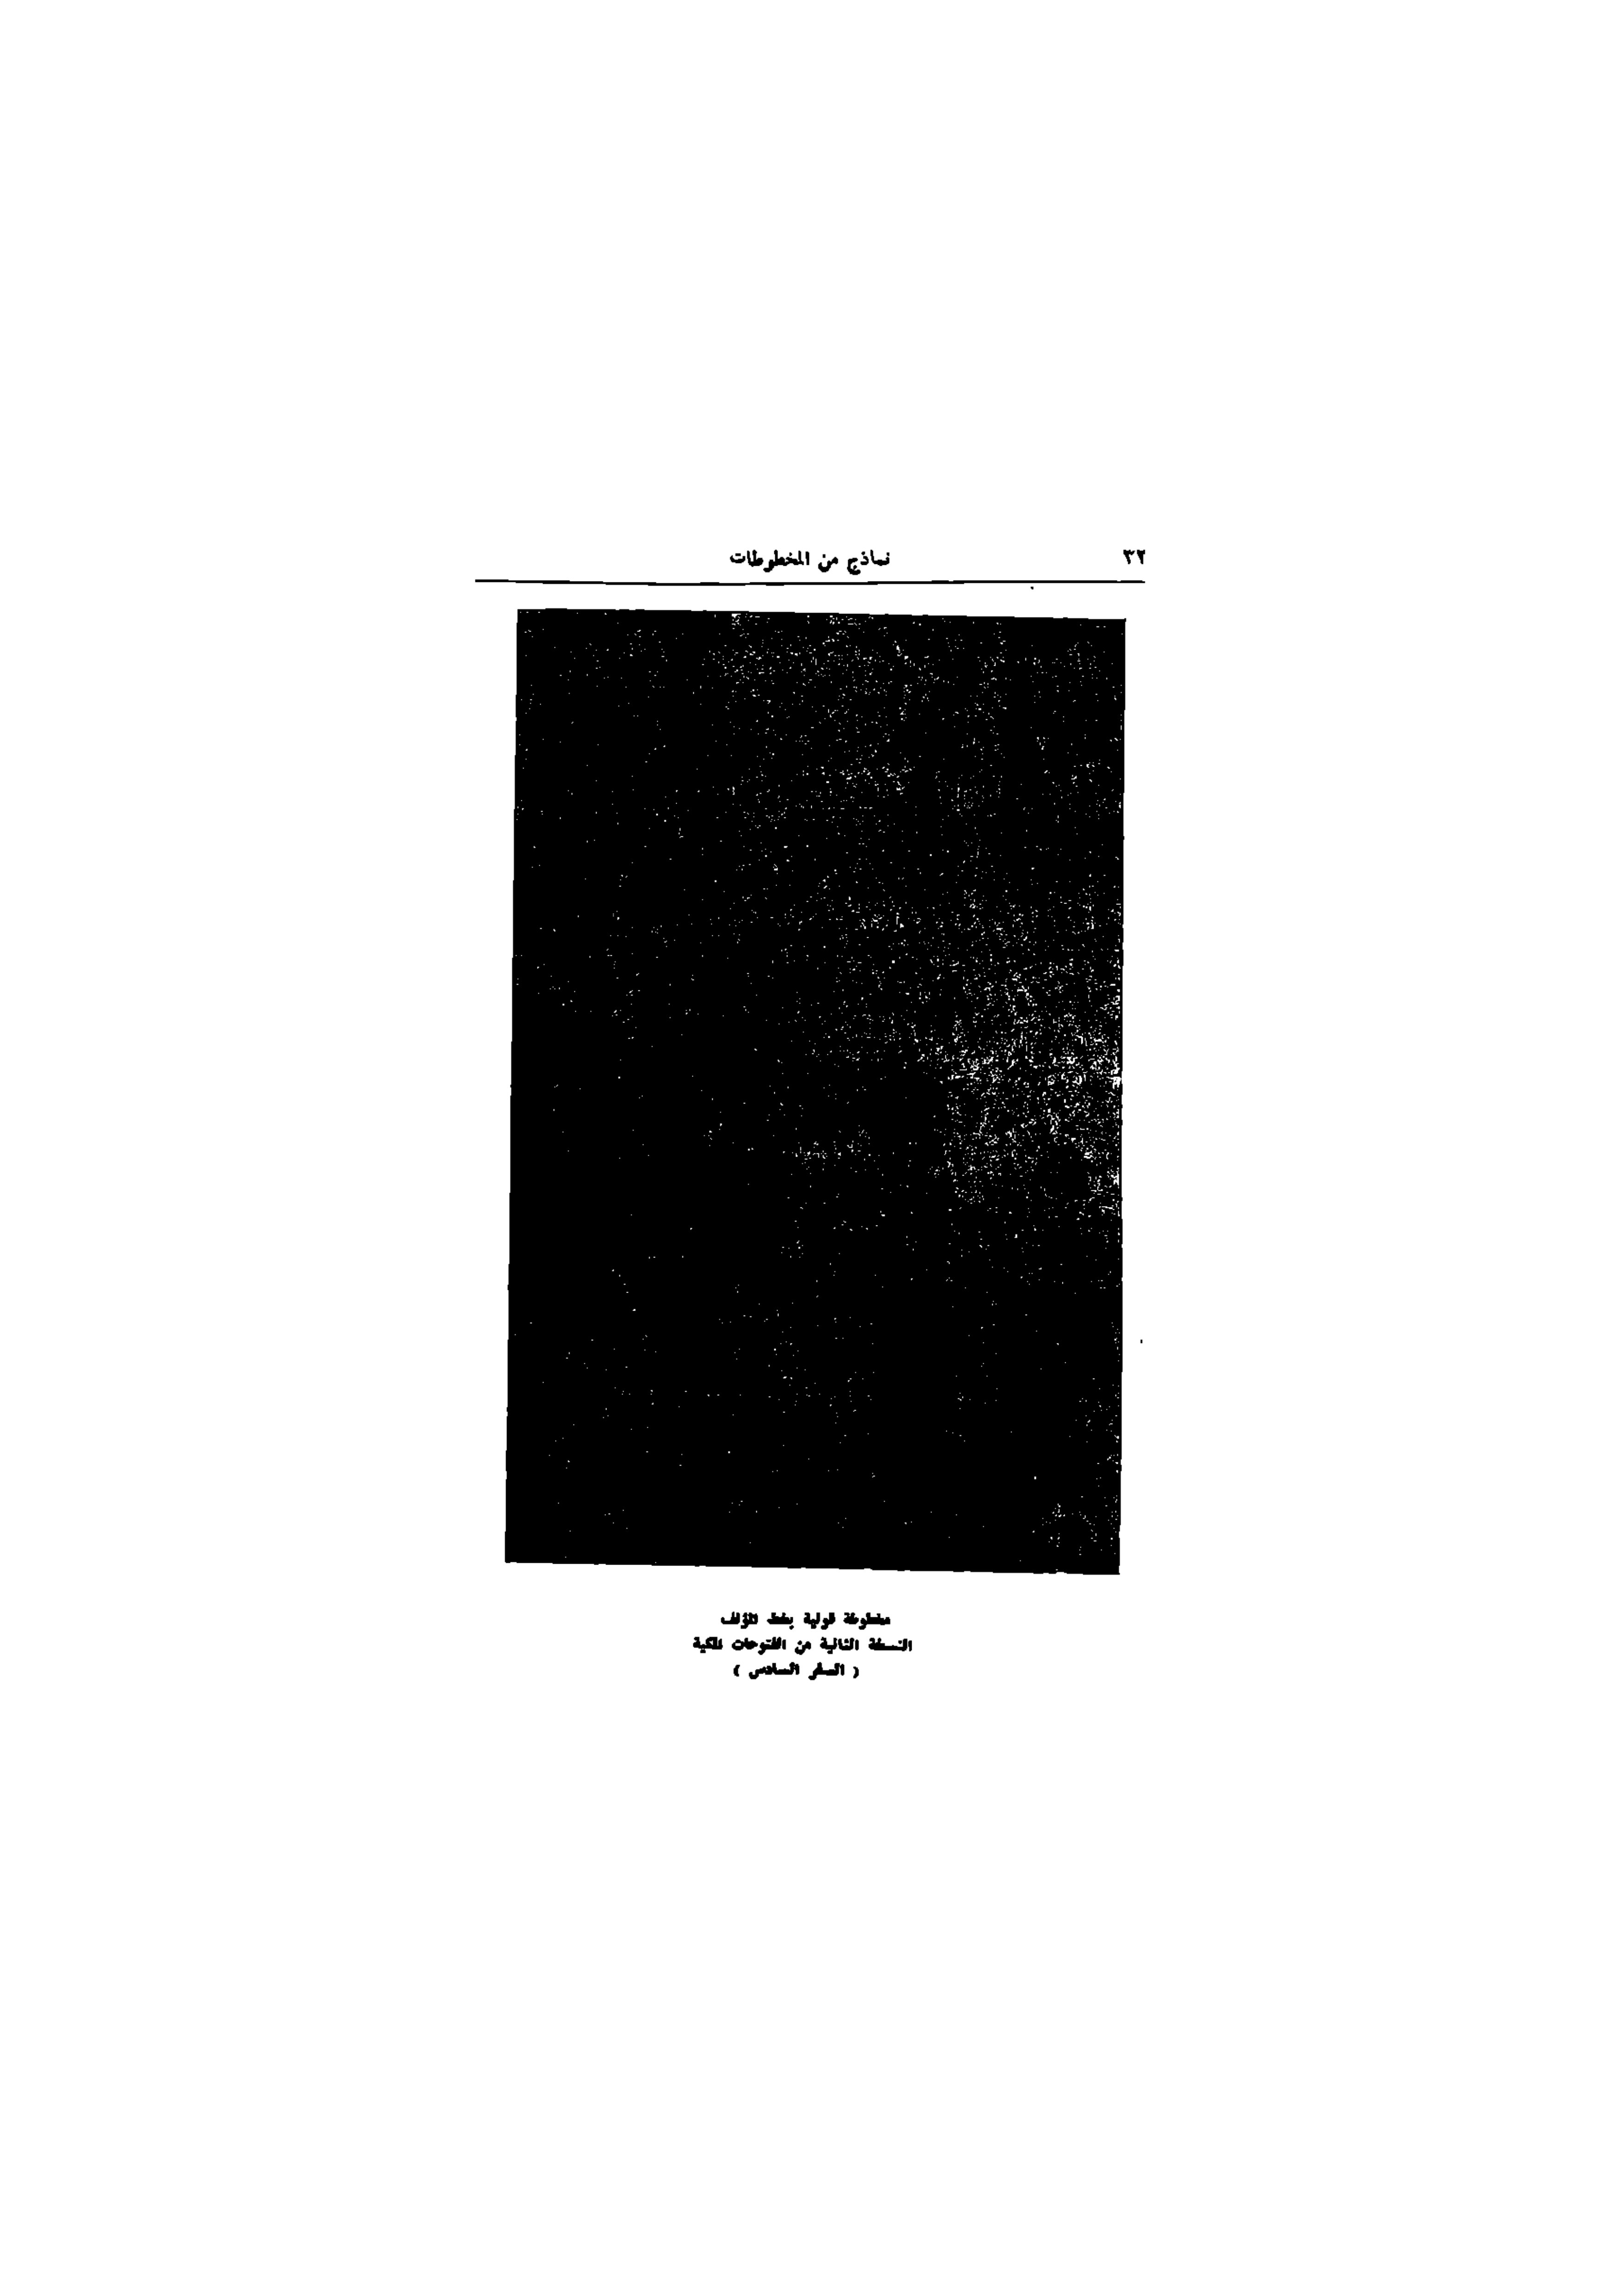 ٣٢ نماذج من المخطوطات
مخطوطة قولية بخط المؤلف
النسخة الثانية من الفتوحات المكية
( السفر السادس )